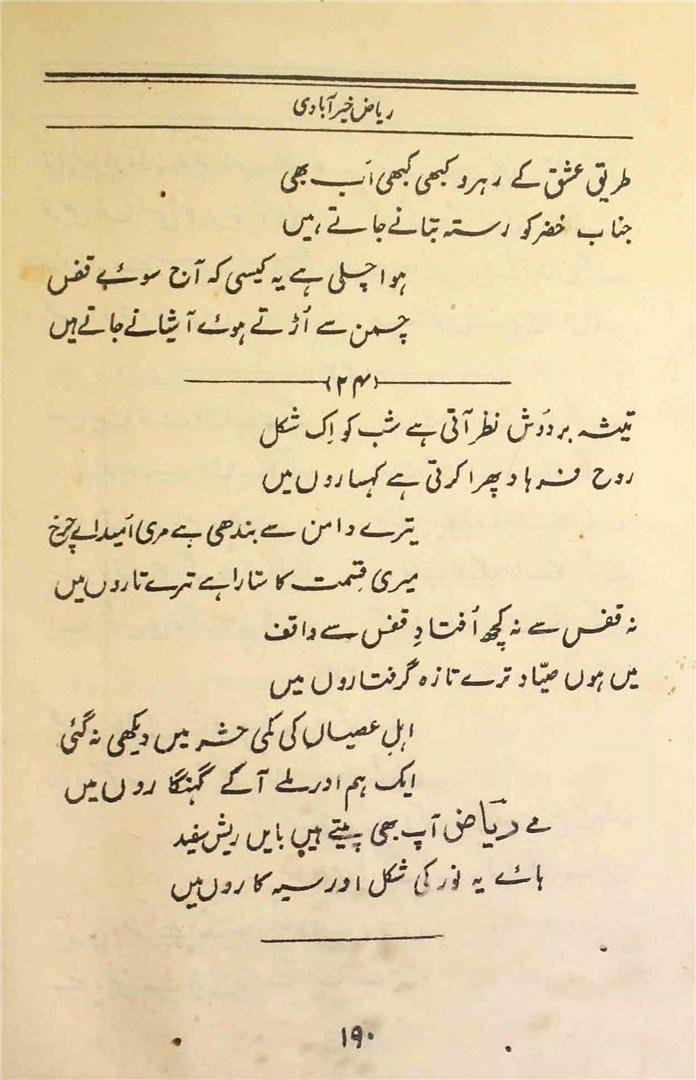 ریاض خیرآبادی
طریق عشق کے رہرو کبھی کبھی اَب بھی
جناب خضر کو رستہ بتانے جاتے ہیں
ہوا چلی ہے یہ کیسی کہ آج سوئے قفس
چمن سے اُڑتے ہوئے آشیانے جاتے ہیں
(۲۴)
تیشہ بردَوش نظر آتی ہے شب کو اِک شکل
روح فرہاد پھرا کرتی ہے کہساروں میں
تیرے دامن سے بندھی ہے مری اُمید اے چرخ
میری قِسمت کا ستارا ہے ترے تاروں میں
نہ قفس سے نہ کچھ اُفتادِ قفس سے واقف
میں ہوں صیّاد ترے تازہ گرفتاروں میں
اہلِ عصیاں کی کمی حشر میں دیکھی نہ گئی
ایک ہم اور ملے آکے گہنگاروں میں
مے ریاض آپ بھی پیتے ہیں بایں ریش سفید
ہائے یہ نور کی شکل اور سیہ کاروں میں
۱۹۰